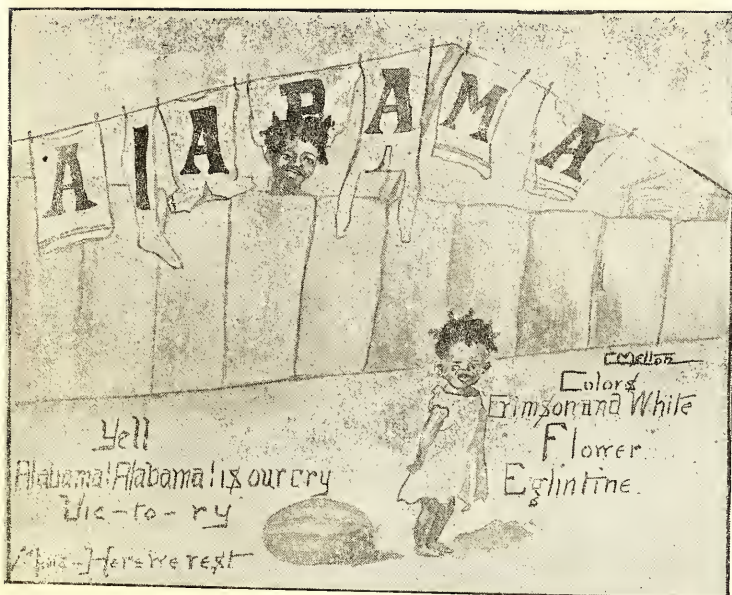 ALABAMA
CMellon
Colors
Crimson and White
Flower
Eglintine.
Yell
Alabama! Alabama! is our cry
Vic-to-ry
Here we rest